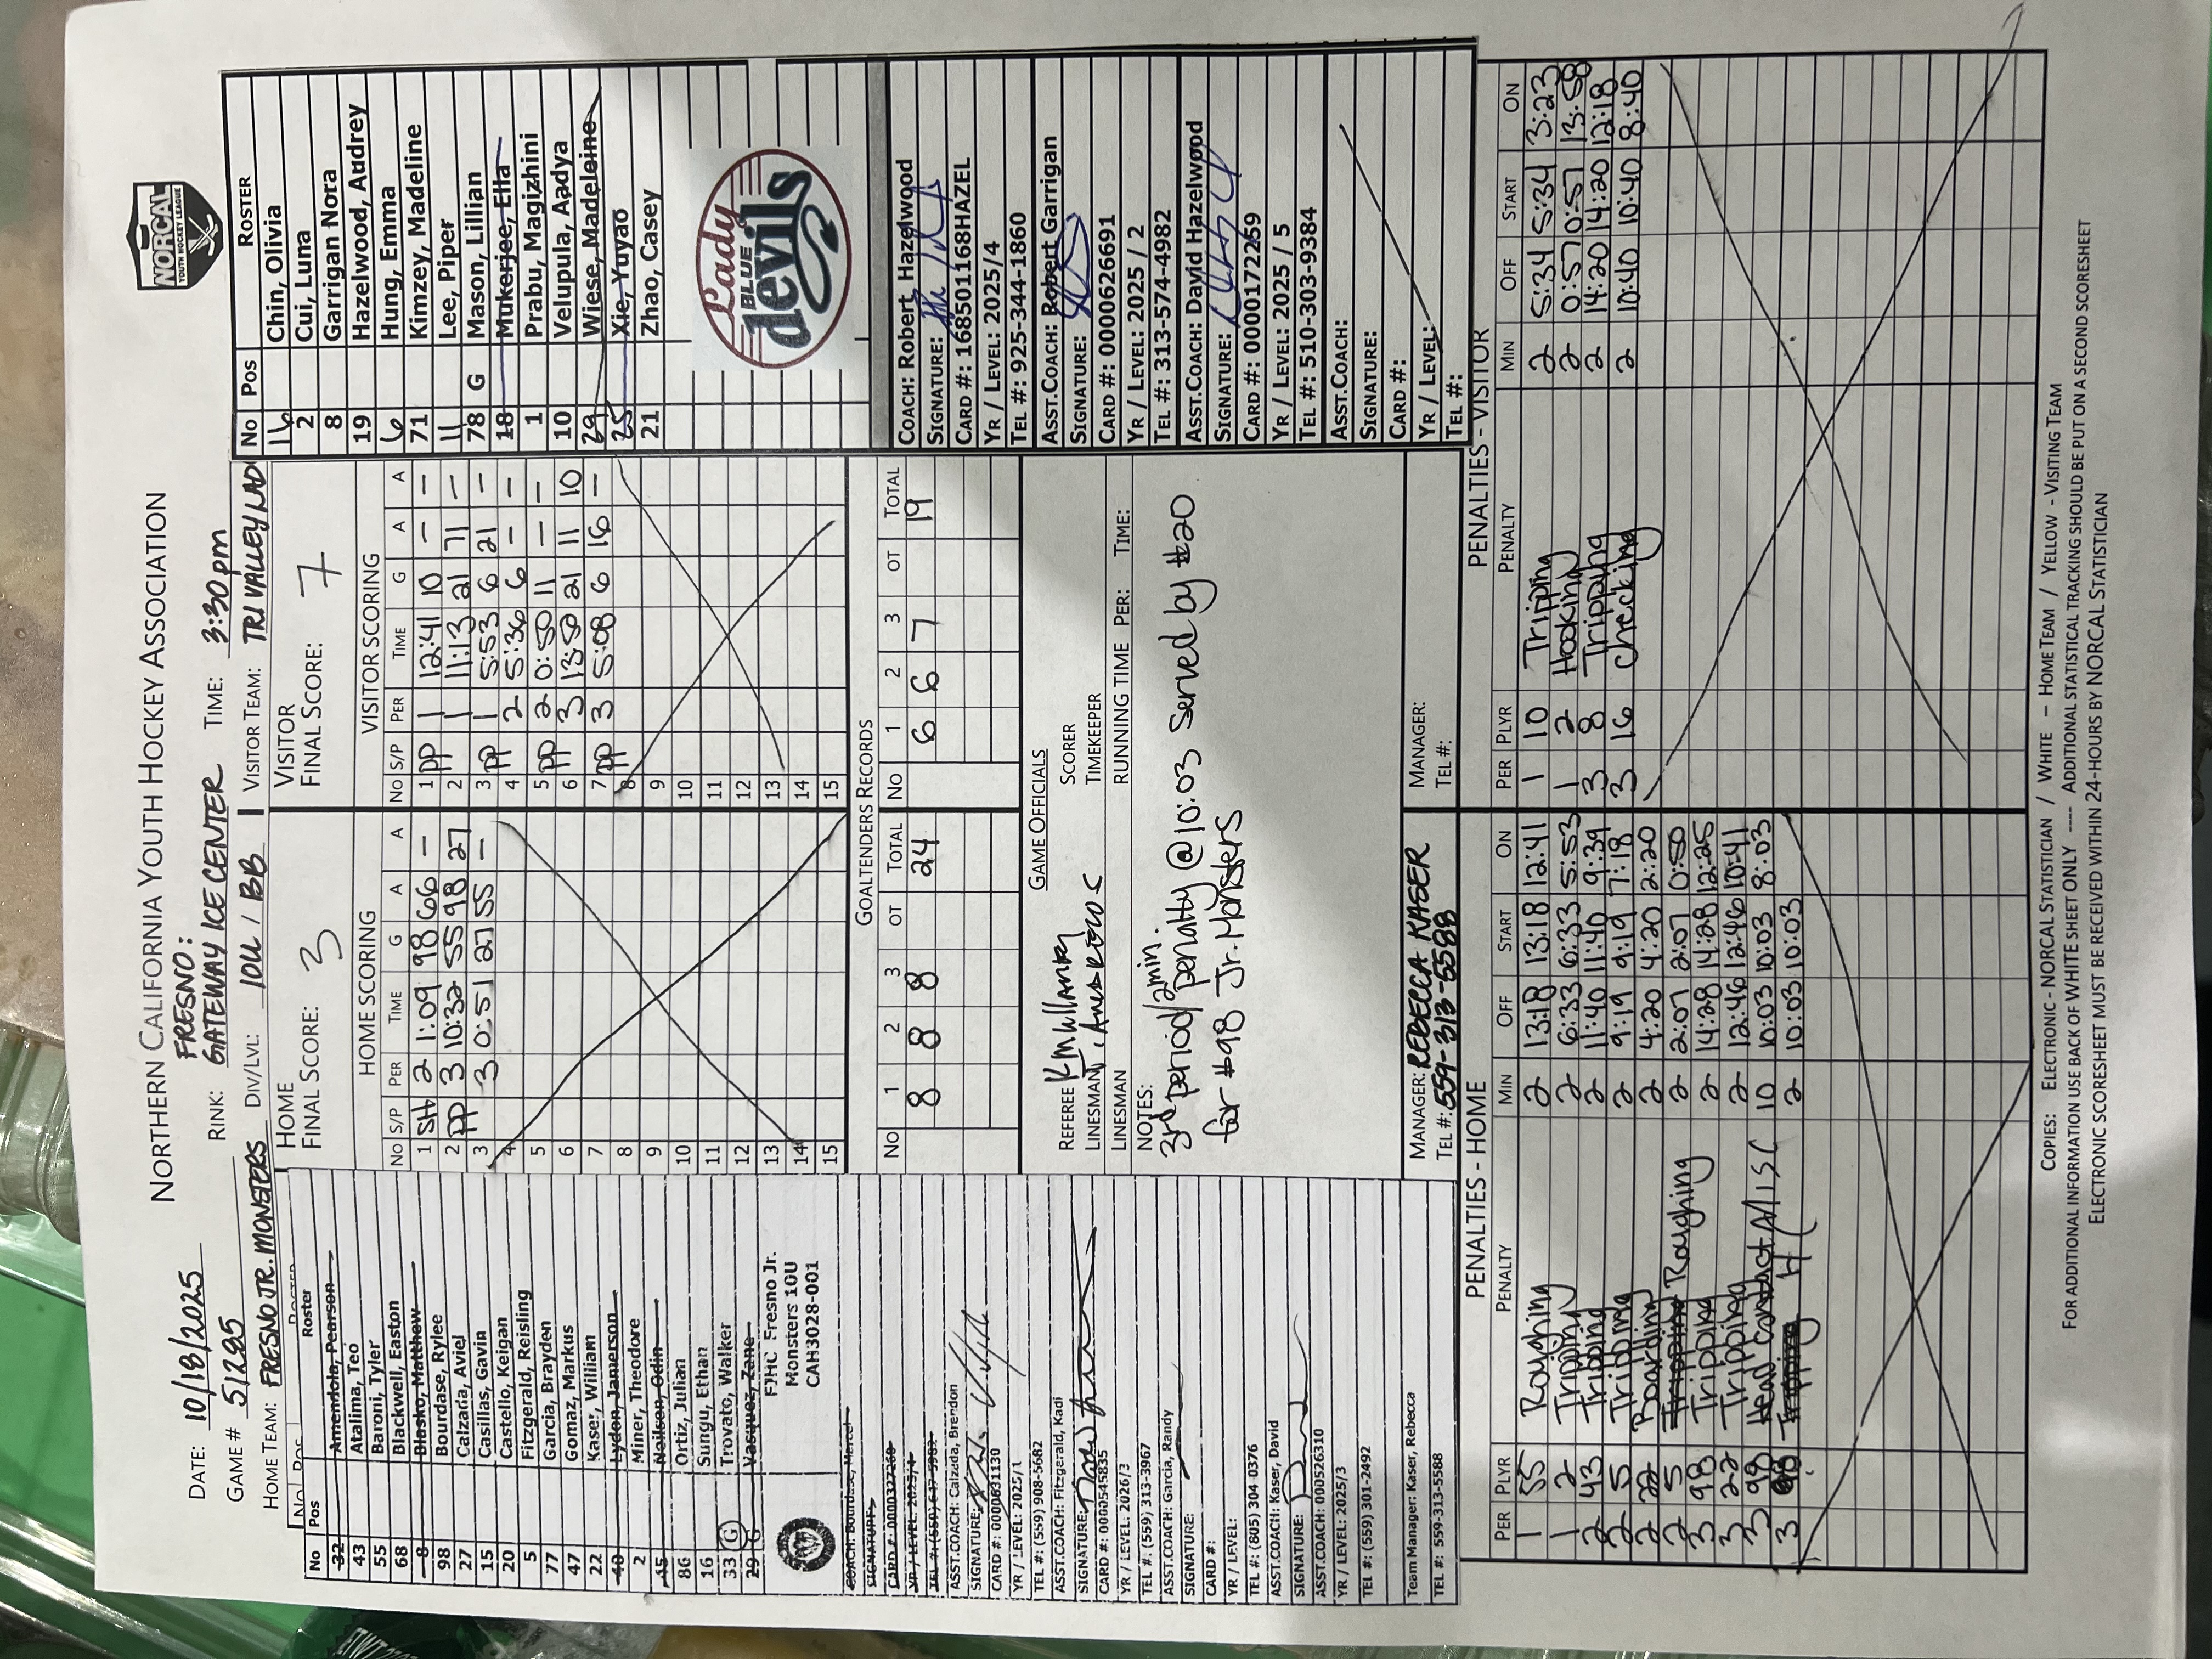 NORTHERN CALIFORNIA YOUTH HOCKEY ASSOCIATION
NORCAL
YOUTH HOCKEY LEAGUE
DATE: 10/18/2025
FRESNO:
RINK: GATEWAY ICE CENTER TIME: 3:30pm
GAME # 51285
DIV/LVL: 10U / BB
HOME TEAM: FRESNO JR. MONSTERS
VISITOR TEAM: TRI VALLEY LAD
No Pos Roster
32 Amendola, Pearson
43 Atalima, Teo
55 Baroni, Tyler
68 Blackwell, Easton
8 Blasko, Matthew
98 Bourdase, Rylee
27 Calzada, Aviel
15 Casillas, Gavin
20 Castello, Keigan
5 Fitzgerald, Reisling
77 Garcia, Brayden
47 Gomaz, Markus
22 Kaser, William
40 Lyden, Jamerson
2 Miner, Theodore
45 Neilsen, Odin
86 Ortiz, Julian
16 Sungu, Ethan
33 G Trovato, Walker
29 G Vasquez, Zane
FJHC Fresno Jr.
Monsters 10U
CAH3028-001
COACH: Bourdase, Mercel
SIGNATURE:
CARD #: 0000327260
YR / LEVEL: 2025/4
TEL #: (559) 647-9982
ASST.COACH: Calzada, Brendon
SIGNATURE:
CARD #: 0000631130
YR / LEVEL: 2025/1
TEL #: (559) 908-5682
ASST.COACH: Fitzgerald, Kadi
SIGNATURE:
CARD #: 0000545835
YR / LEVEL: 2026/3
TEL #. (559) 313-3967
ASST.COACH: Garcia, Randy
SIGNATURE:
CARD #:
YR / LEVEL:
TEL #: (805) 304 0376
ASST.COACH: Kaser, David
SIGNATURE:
ASST.COACH: 000526310
YR / LEVEL: 2025/3
TEL #: (559) 301-2492
Team Manager: Kaser, Rebecca
TEL #: 559-313-5588
HOME
FINAL SCORE: 3
HOME SCORING
No S/P PER TIME G A A
1 SH 2 1:09 98 66 —
2 PP 3 10:32 55 98 27
3 3 0:51 27 55 —
4
5
6
7
8
9
10
11
12
13
14
15
VISITOR
FINAL SCORE: 7
VISITOR SCORING
No S/P PER TIME G A A
1 PP 1 12:41 10 — —
2 1 11:13 21 71 —
3 PP 1 5:53 6 21 —
4 2 5:36 6 — —
5 PP 2 0:50 11 — —
6 3 13:50 21 11 10
7 PP 3 5:08 6 16 —
8
9
10
11
12
13
14
15
GOALTENDERS RECORDS
No 1 2 3 OT TOTAL No 1 2 3 OT TOTAL
8 8 8 24 6 6 7 19
GAME OFFICIALS
REFEREE K McWilliams SCORER
LINESMAN TIMEKEEPER
LINESMAN RUNNING TIME PER: TIME:
NOTES:
3rd period/2min. penalty @ 10:03 served by #20
for #98 Jr. Monsters
MANAGER: REBECCA KASER
TEL #: 559-313-5588
MANAGER:
TEL #:
No Pos ROSTER
16 Chin, Olivia
2 Cui, Luna
8 Garrigan Nora
19 Hazelwood, Audrey
6 Hung, Emma
71 Kimzey, Madeline
11 Lee, Piper
78 G Mason, Lillian
18 Mukerjee, Etta
1 Prabu, Magizhini
10 Velupula, Aadya
29 Wiese, Madeleine
25 Xie, Yuyao
21 Zhao, Casey
Lady
BLUE
devils
COACH: Robert Hazelwood
SIGNATURE:
CARD #: 168501168HAZEL
YR / LEVEL: 2025/4
TEL #: 925-344-1860
ASST.COACH: Robert Garrigan
SIGNATURE:
CARD #: 0000626691
YR / LEVEL: 2025 / 2
TEL #: 313-574-4982
ASST.COACH: David Hazelwood
SIGNATURE:
CARD #: 0000172259
YR / LEVEL: 2025 / 5
TEL #: 510-303-9384
ASST.COACH:
SIGNATURE:
CARD #:
YR / LEVEL:
TEL #:
PENALTIES - HOME
PER PLYR PENALTY MIN OFF START ON
1 55 Roughing 2 13:18 13:18 12:41
1 2 Tripping 2 6:33 6:33 5:53
2 43 Tripping 2 11:40 11:40 9:39
2 5 Tripping 2 9:19 9:19 7:18
2 22 Boarding 2 4:20 4:20 2:20
2 5 Tripping Roughing 2 2:07 2:07 0:50
3 98 Tripping 2 14:28 14:28 12:25
3 22 Tripping 2 12:46 12:46 10:41
3 98 Head Contact Misc 10 10:03 10:03 8:03
3 98 H C 2 10:03 10:03
PENALTIES - VISITOR
PER PLYR PENALTY MIN OFF START ON
1 10 Tripping 2 5:34 5:34 3:23
1 2 Hooking 2 0:57 0:57 13:58
3 8 Tripping 2 14:20 14:20 12:18
3 16 Checking 2 10:40 10:40 8:40
COPIES: ELECTRONIC - NORCAL STATISTICIAN / WHITE – HOME TEAM / YELLOW - VISITING TEAM
FOR ADDITIONAL INFORMATION USE BACK OF WHITE SHEET ONLY ---- ADDITIONAL STATISTICAL TRACKING SHOULD BE PUT ON A SECOND SCORESHEET
ELECTRONIC SCORESHEET MUST BE RECEIVED WITHIN 24-HOURS BY NORCAL STATISTICIAN